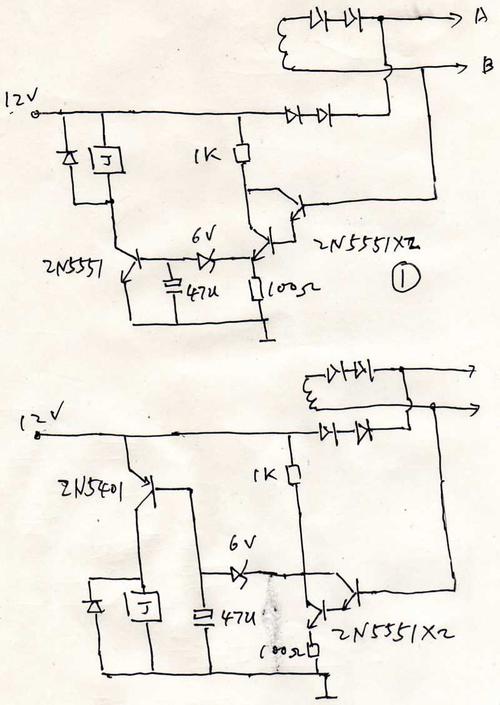 A
B
12V
J
1K
6V
2N5551
47u
100Ω
2N5551X2
①
12V
2N5401
1K
6V
J
47u
2N5551X2
100Ω